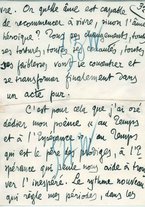 vre. On qu'elle âme est capable
de recommencer à vivre, sinon l'âme
héroïque ? Tous ses changements, toutes
ses tortures, toutes ses cruautés, toutes
ses faiblesses vont se conduire et
se transformer finalement dans
un acte pur.
C'est pour cela que j'ai osé
dédier mon poème au Temps
et à l'Espérance : au Temps
qui est le père des prodiges, à l'Es-
pérance qui seule nous aide à trou-
ver l'inespéré. Le rythme nouveau
qui règle mes périodes, dans les